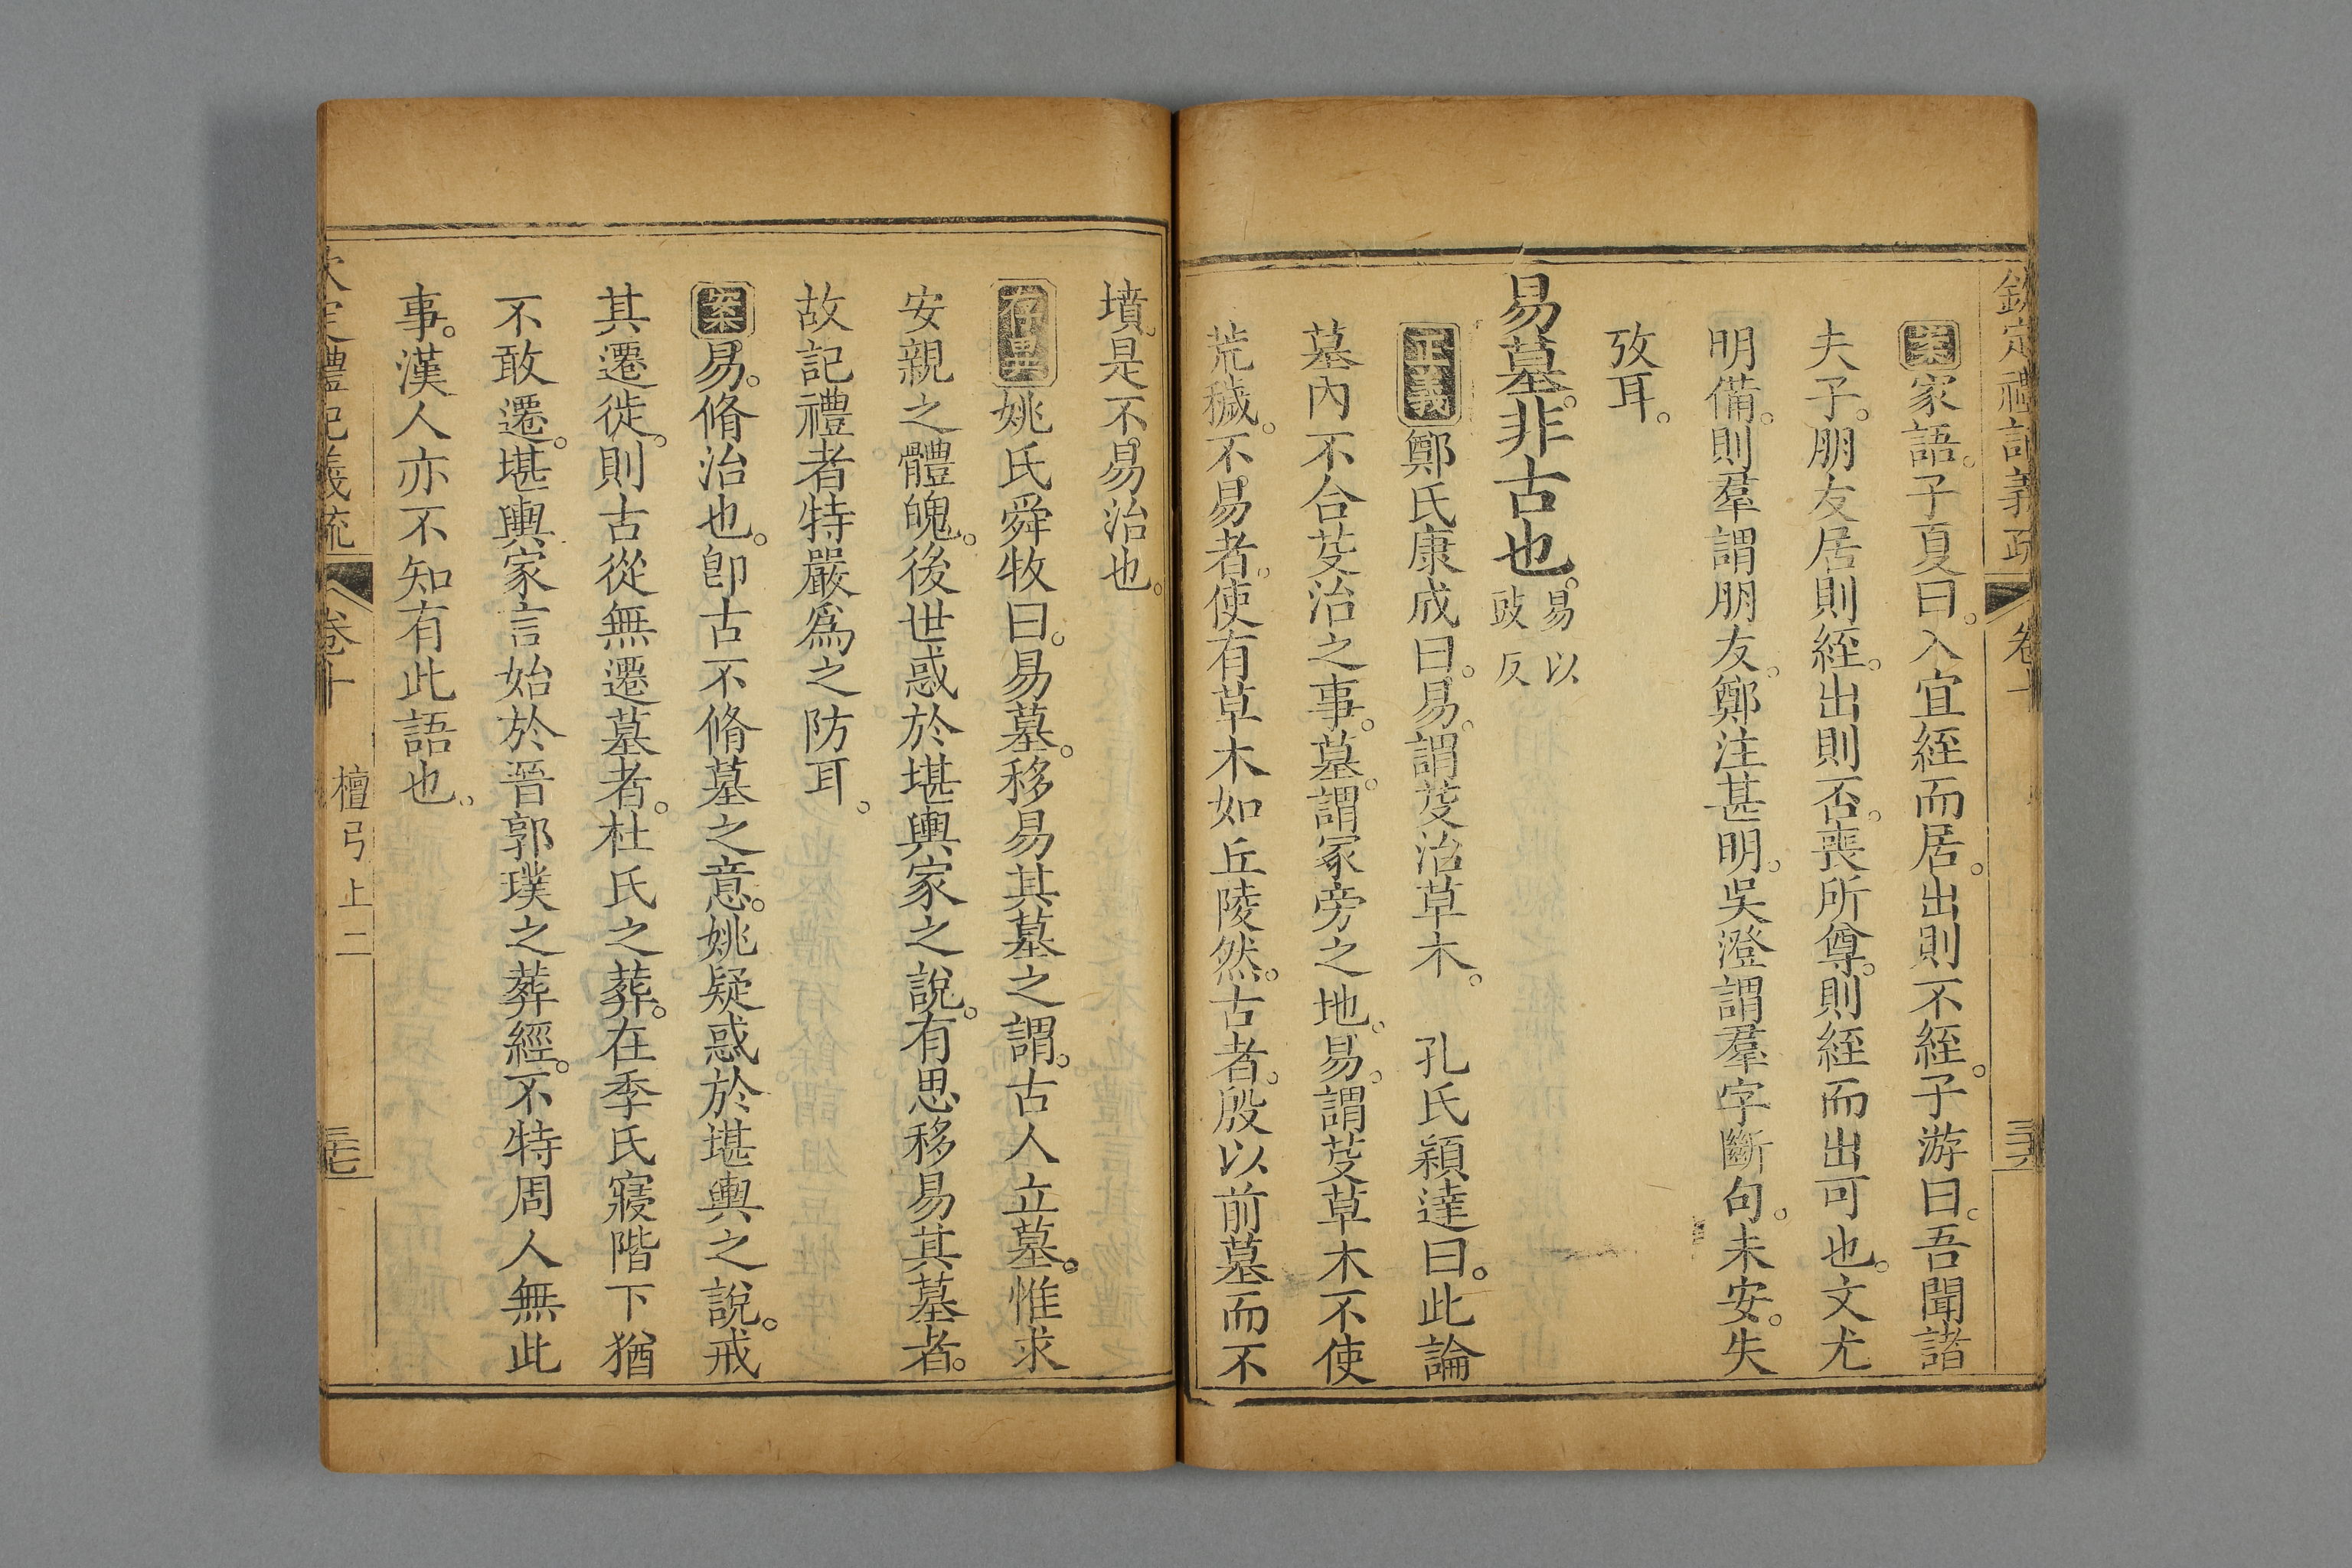 欽定禮記義疏 卷十 三十六
案家語。子夏曰。入宜絰而居。出則不絰。子游曰。吾聞諸
夫子。朋友居則絰。出則否。喪所尊。則絰而出可也。文尤
明備。則羣謂朋友。鄭注甚明。吳澄謂羣字斷句。未安。失
攷耳。
易墓。非古也。易以豉反
正義鄭氏康成曰。易。謂芟治草木。 孔氏穎達曰。此論
墓內不合芟治之事。墓。謂冢旁之地。易。謂芟草木不使
荒穢。不易者。使有草木如丘陵然。古者。殷以前墓而不
墳。是不易治也。
存異姚氏舜牧曰。易墓。移易其墓之謂。古人立墓。惟求
安親之體魄。後世惑於堪輿家之說。有思移易其墓者。
故記禮者特嚴爲之防耳。
案易。脩治也。卽古不脩墓之意。姚疑惑於堪輿之說。戒
其遷徙。則古從無遷墓者。杜氏之葬。在季氏寢階下猶
不敢遷。堪輿家言始於晉郭璞之葬經。不特周人無此
事。漢人亦不知有此語也。
欽定禮記義疏 卷十 檀弓上二 三十七